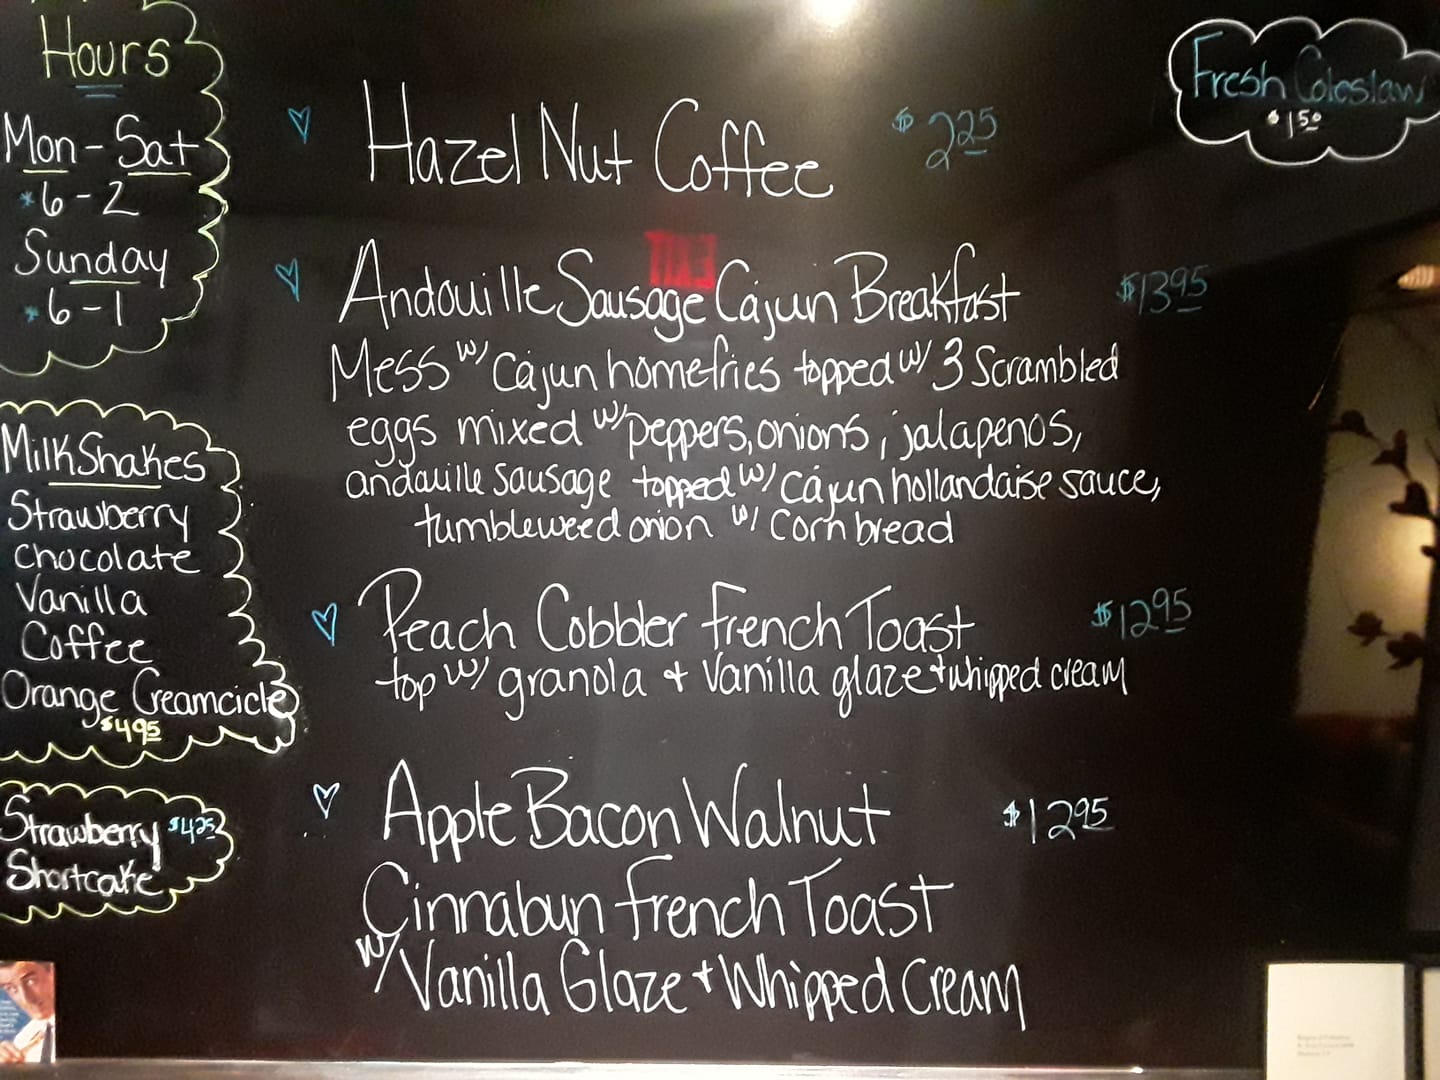 Hours
Mon - Sat
*6 - 2
Sunday
*6 - 1
MilkShakes
Strawberry
Chocolate
Vanilla
Coffee
Orange Creamcicle
$4.95
Strawberry $4.25
Shortcake
Hazel Nut Coffee $2.25
Andouille Sausage Cajun Breakfast $13.95
Mess w/ Cajun homefries topped w/ 3 Scrambled
eggs mixed w/ peppers, onions, jalapenos,
andouille sausage topped w/ cajun hollandaise sauce,
tumbleweed onion w/ Corn bread
Peach Cobbler French Toast $12.95
top w/ granola + Vanilla glaze + whipped cream
Apple Bacon Walnut $12.95
Cinnabun French Toast
w/ Vanilla Glaze + Whipped Cream
Fresh Coleslaw
$1.50
EXIT